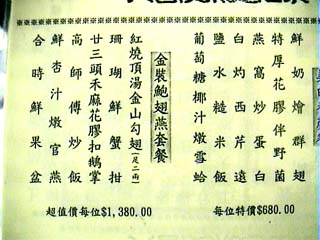 鮮奶燴群翅
特厚花膠伴野菌
燕窩炒蛋白
白灼西芹遠
鹽水糙米飯
葡萄糖椰汁燉雪蛤
每位特價$680.00
金裝鮑翅燕套餐
紅燒頂湯金山勾翅(足二両)
珊瑚鮮蟹拑
廿三頭禾麻花膠扣鵝掌
高師傅炒飯
鮮杏汁燉官燕
合時鮮果盆
超值價每位$1,380.00